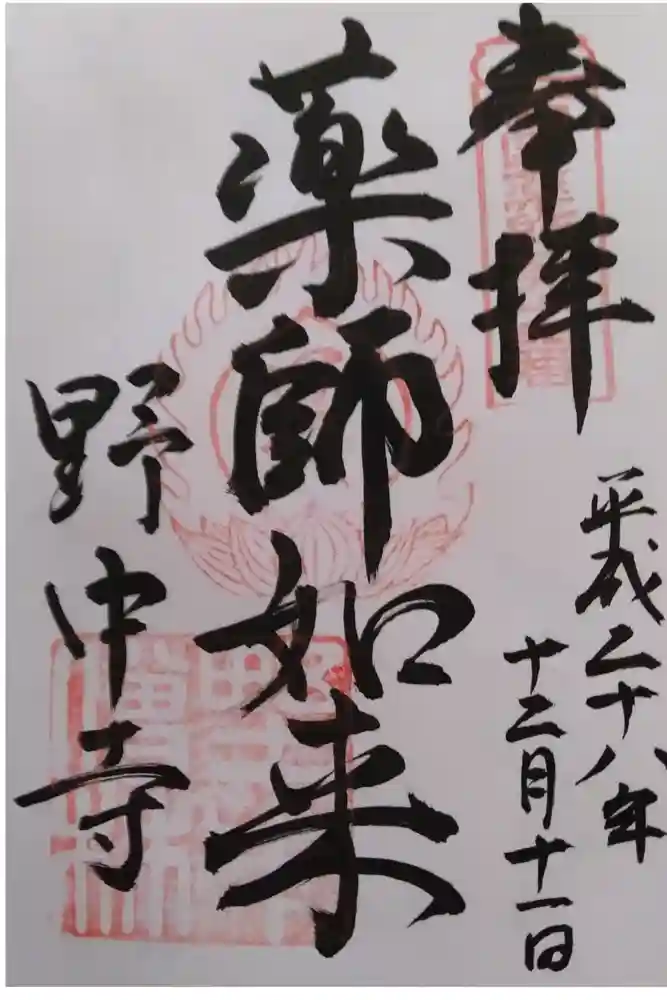 奉拝
平成二十八年
十二月十一日
薬師如来
野中寺